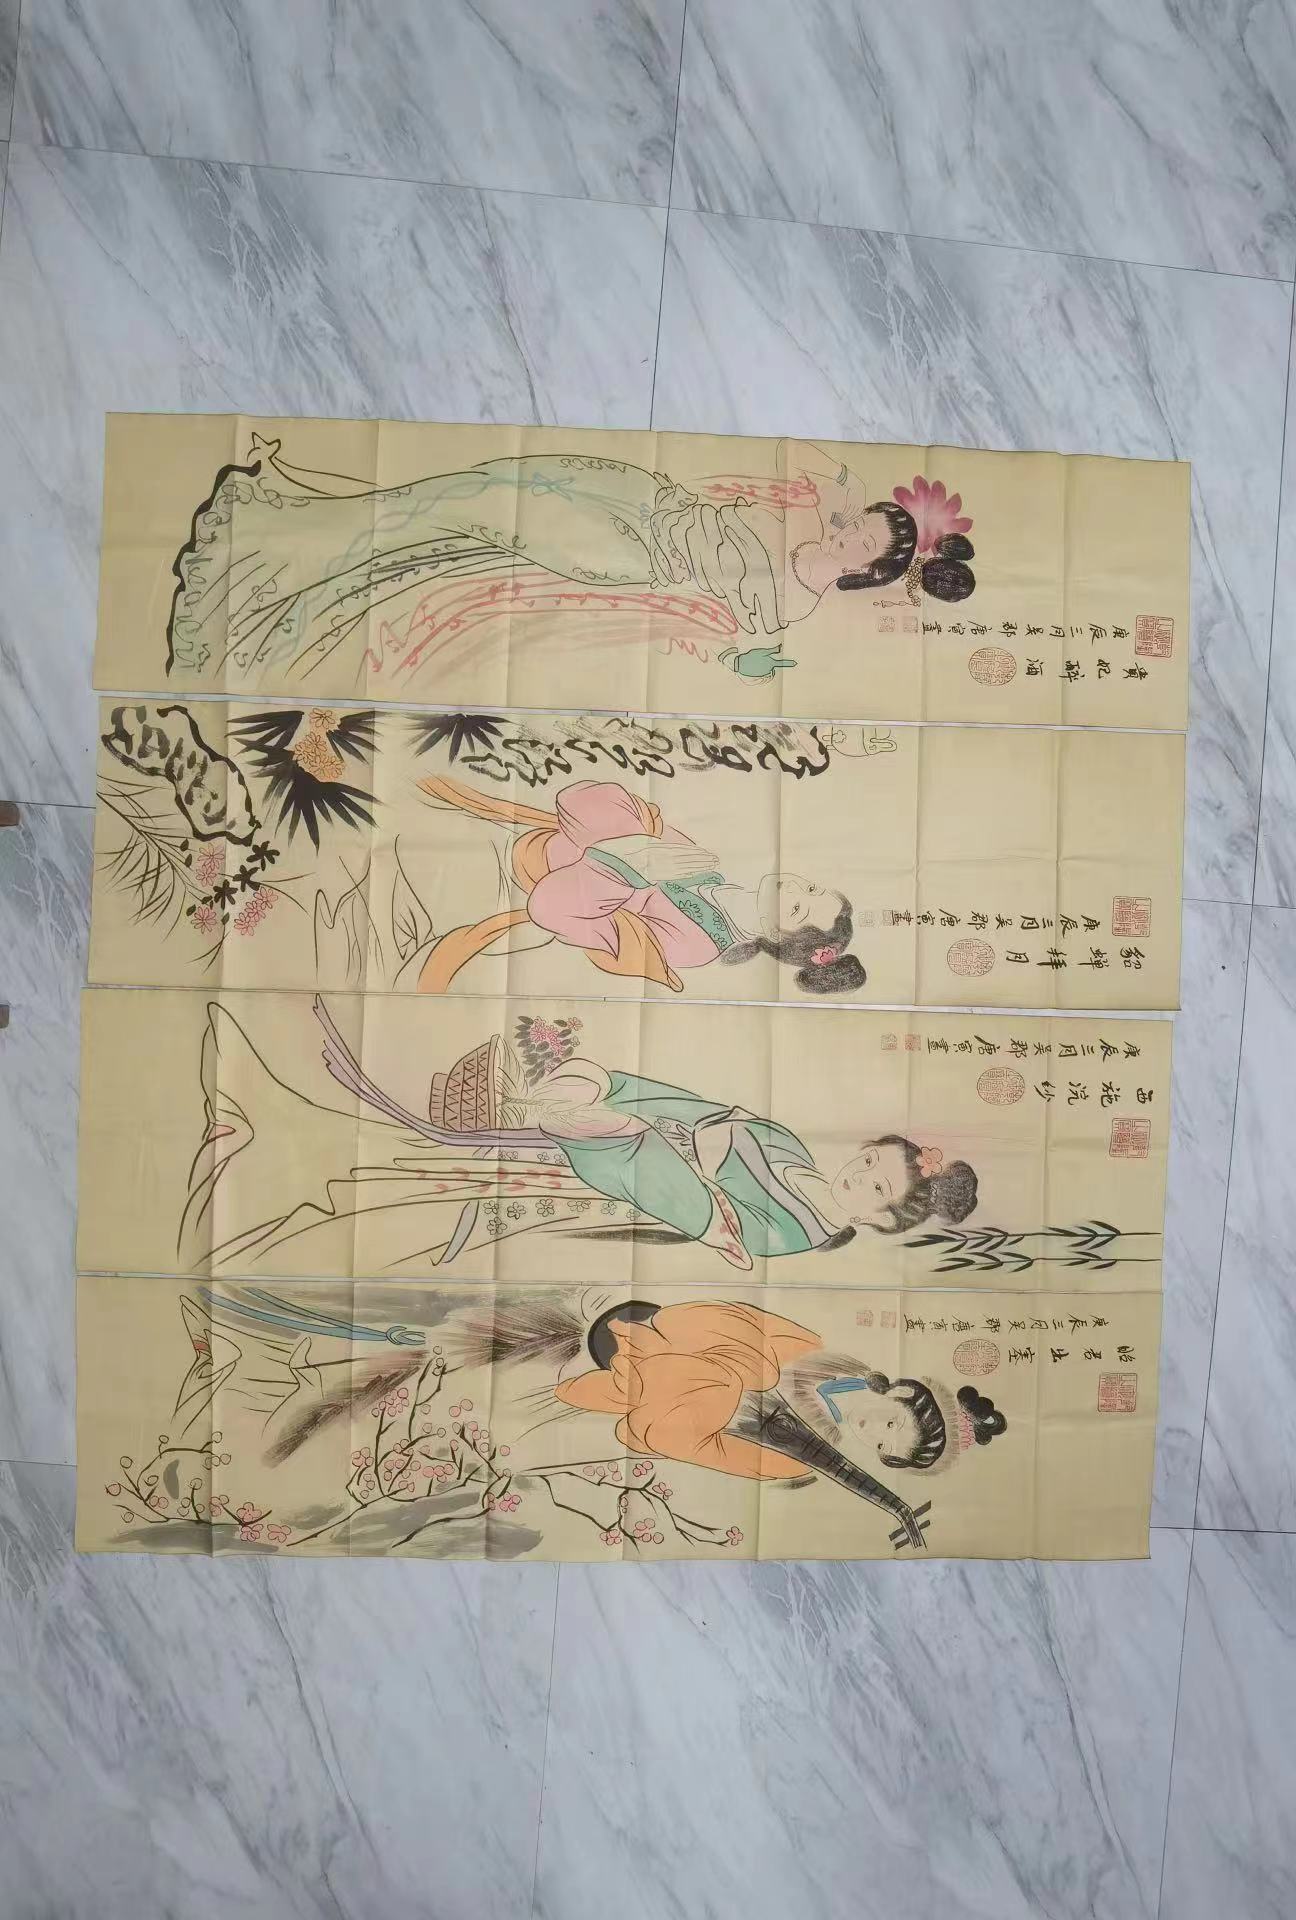 貴妃醉酒
庚辰三月吴郡唐寅畫
貂蟬拜月
庚辰三月吴郡唐寅畫
西施浣纱
庚辰三月吴郡唐寅畫
昭君出塞
庚辰三月吴郡唐寅畫